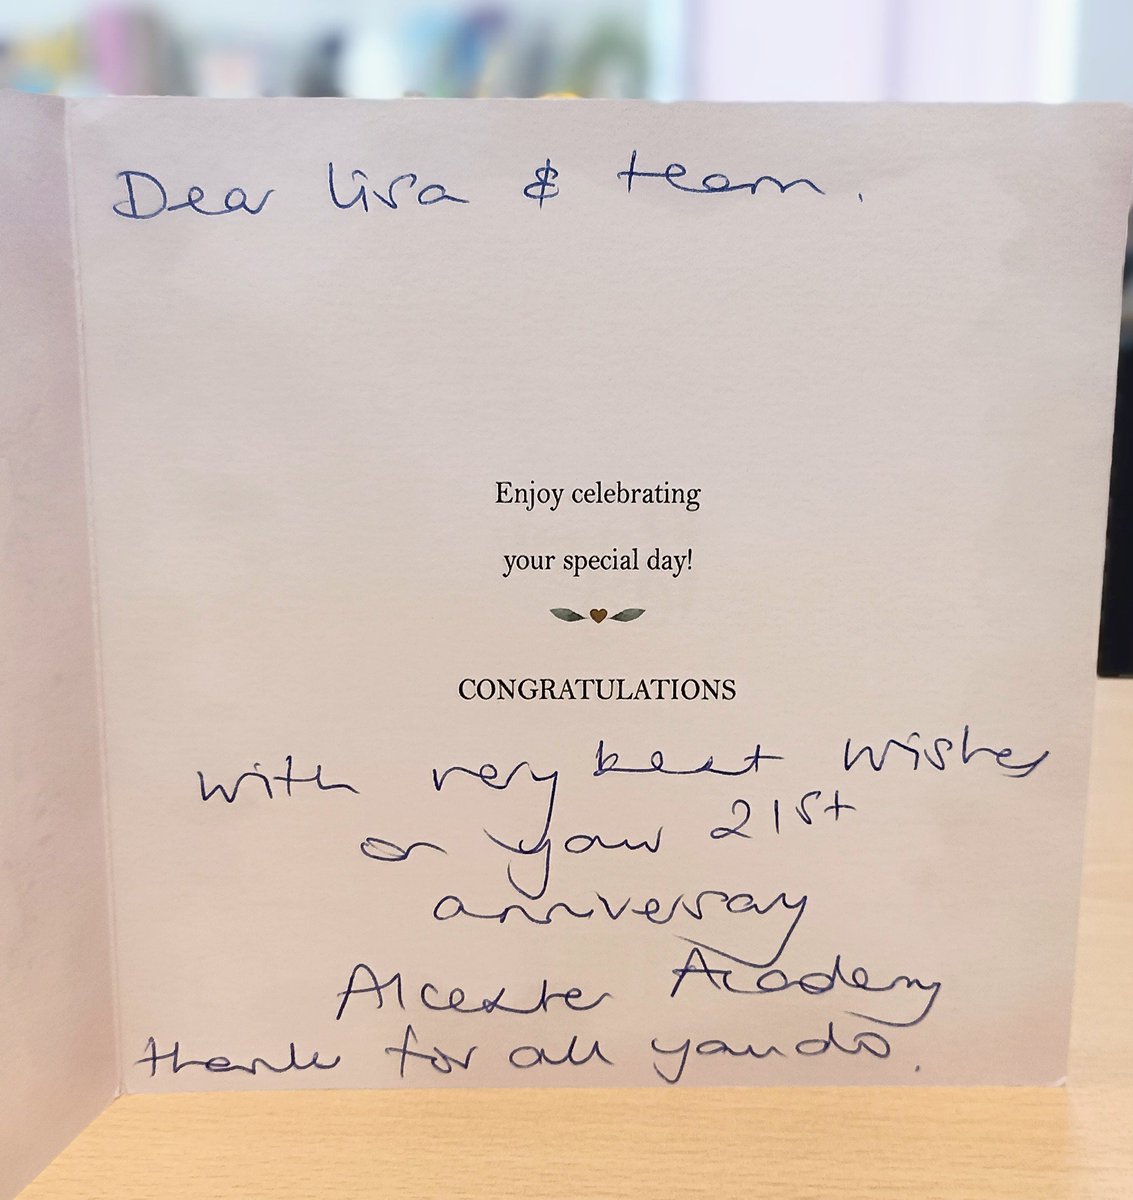 Dear Lisa & team.
Enjoy celebrating
your special day!
CONGRATULATIONS
with very best wishes
on your 21st
anniversary
Alcester Academy
thanks for all you do.